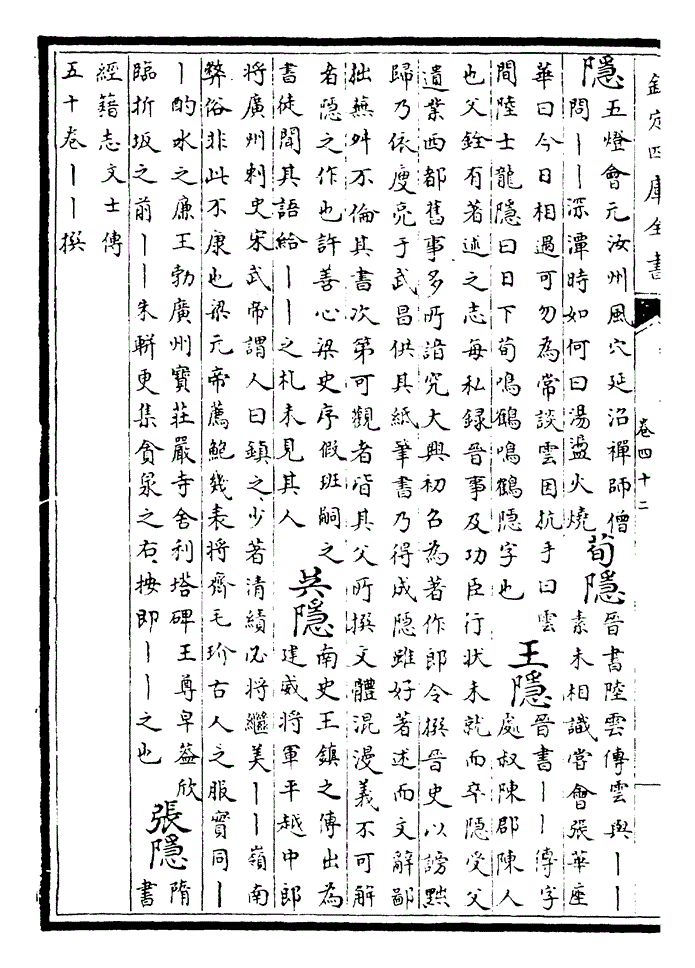 欽定四庫全書
卷四十二
隱
五燈會元汝州風穴延沼禪師僧
問丨丨深潭時如何曰湯盪火燒
荀隱
晉書陸雲傳雲與丨丨
素未相識嘗會張華座
華曰今日相遇可勿為常談雲因抗手曰雲
間陸士龍隱曰日下荀鳴鶴鳴鶴隱字也
王隱
晉書丨丨傳字
處叔陳郡陳人
也父銓有著述之志每私録晉事及功臣行狀未就而卒隱受父
遺業西都舊事多所諳究大興初召為著作郎令撰晉史以謗黜
歸乃依庾亮于武昌供其紙筆書乃得成隱雖好著述而文辭鄙
拙蕪舛不倫其書次第可觀者皆其父所撰文體混漫義不可解
者隱之作也許善心梁史序假班嗣之
書徒聞其語給丨丨之札未見其人
吳隱
南史王鎮之傳出為
建威將軍平越中郎
將廣州刺史宋武帝謂人曰鎮之少著清績必將繼美丨丨嶺南
弊俗非此不康也梁元帝薦鮑幾表將齊毛玠古人之服實同丨
丨酌水之廉王勃廣州寶莊嚴寺舍利塔碑王尊皁葢欣
臨折坂之前丨丨朱軿更集貪泉之右按即丨丨之也
張隱
隋
書
經籍志文士傳
五十卷丨丨撰